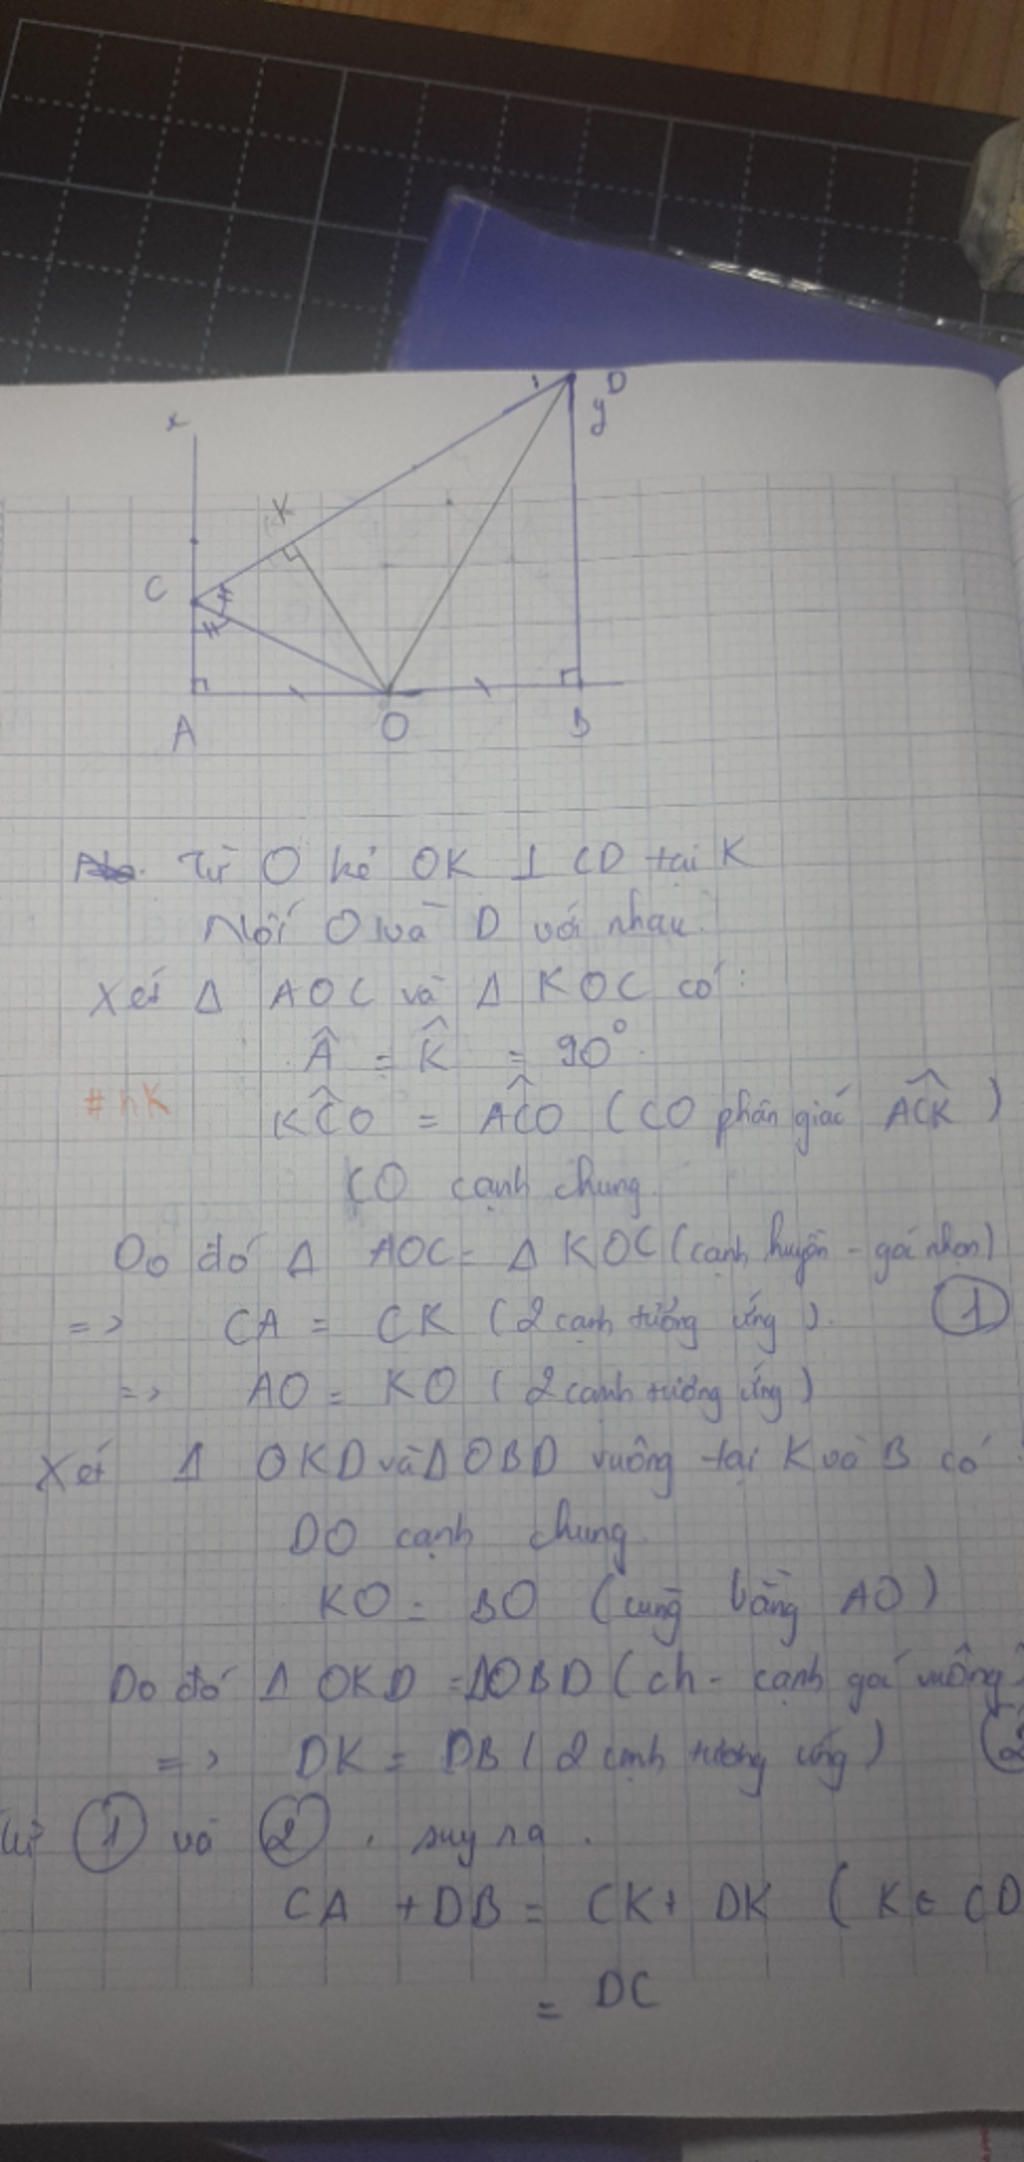 x
D
y
K
C
A
O
B
Từ O kẻ OK ⊥ CD tại K
Nối O và D với nhau.
Xét Δ AOC và Δ KOC có:
Â = K̂ = 90°.
#nK
KĈO = AĈO (CO phân giác AĈK)
CO cạnh chung.
Do đó Δ AOC = Δ KOC (cạnh huyền - góc nhọn)
=> CA = CK (2 cạnh tương ứng). ①
=> AO = KO (2 cạnh tương ứng)
Xét Δ OKD và Δ OBD vuông tại K và B có
DO cạnh chung.
KO = BO (cùng bằng AO)
Do đó Δ OKD = Δ OBD (ch - cạnh góc vuông)
=> DK = DB (2 cạnh tương ứng) ②
Từ ① và ②, suy ra.
CA + DB = CK + DK (K ∈ CD
= DC